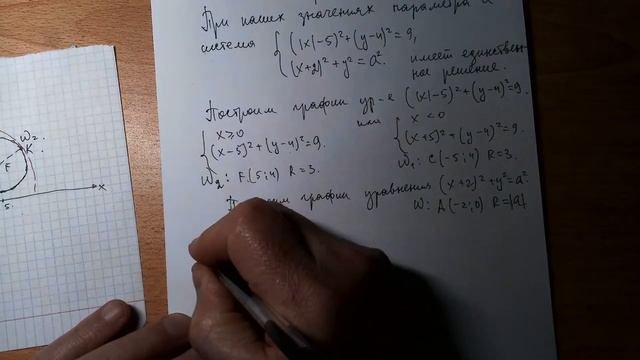 При каких значениях параметра а
система { (|x|-5)²+(y-4)²=9,
(x+2)²+y²=a². имеет единствен-
ное решение.
Построим графии ур-е (|x|-5)²+(y-4)²=9.
{ x≥0 или { x<0
(x-5)²+(y-4)²=9. (x+5)²+(y-4)²=9.
W₂: F(5;4) R=3. W₁: C(-5;4) R=3.
графии уравнения (x+2)²+y²=a²
W: A(-2;0) R=|a|
W₂.
K
F
x
5